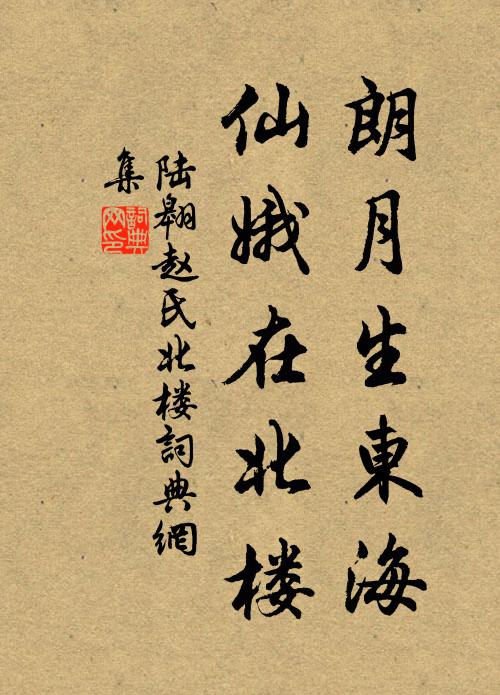 朗月生東海
仙娥在北楼
陆翱赵氏北楼詞典網
集
詞典
网印